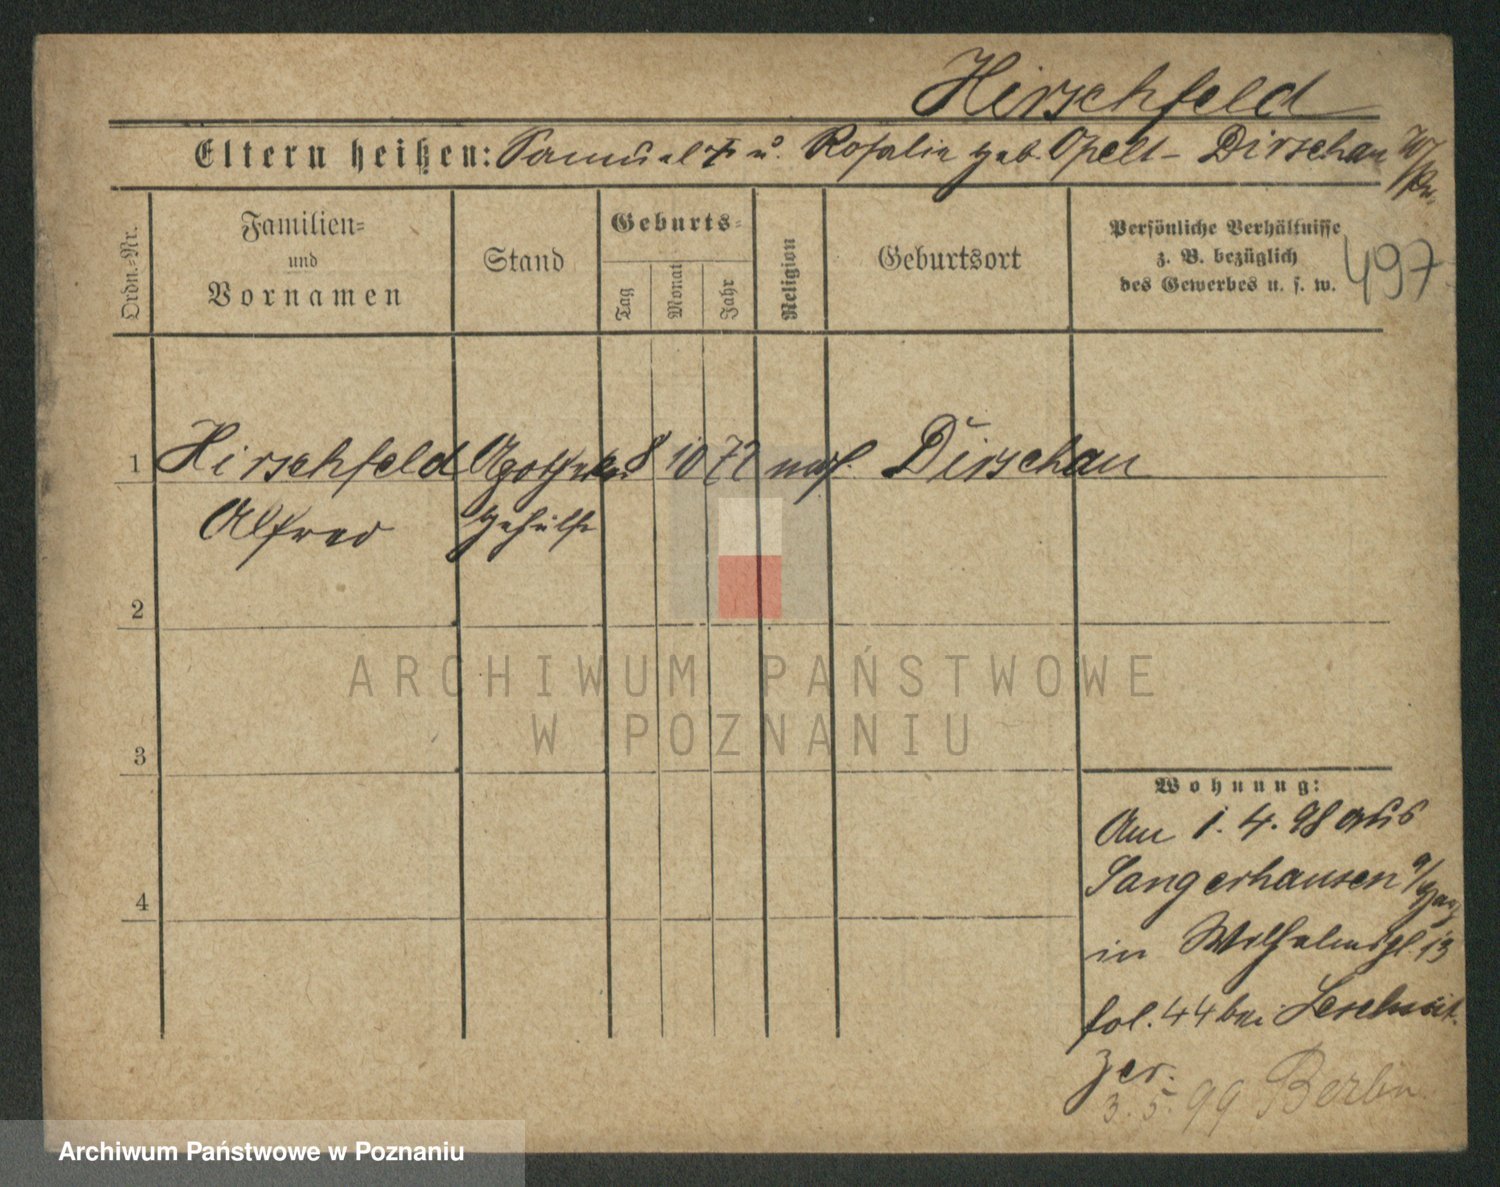 Hirschfeld
Eltern heißen: Samuel † u. Rosalie geb. Opelt - Dirschau W/Pr.
Ordn.-Nr.
Familien-
und
Vornamen
Stand
Geburts-
Tag
Monat
Jahr
Religion
Geburtsort
Persönliche Verhältnisse
z. B. bezüglich
des Gewerbes u. s. w.
497
1 Hirschfeld Apotheker 8 10 72 mos. Dirschau
Alfred gehülfe
2
3
4
Wohnung:
Am 1.4.98 aus
Sangerhausen a/Harz
in Wilhelmspl. 13
fol. 44 bei Leschnit-
zer.
3.5.99 Berlin
ARCHIWUM PAŃSTWOWE
W POZNANIU
Archiwum Państwowe w Poznaniu